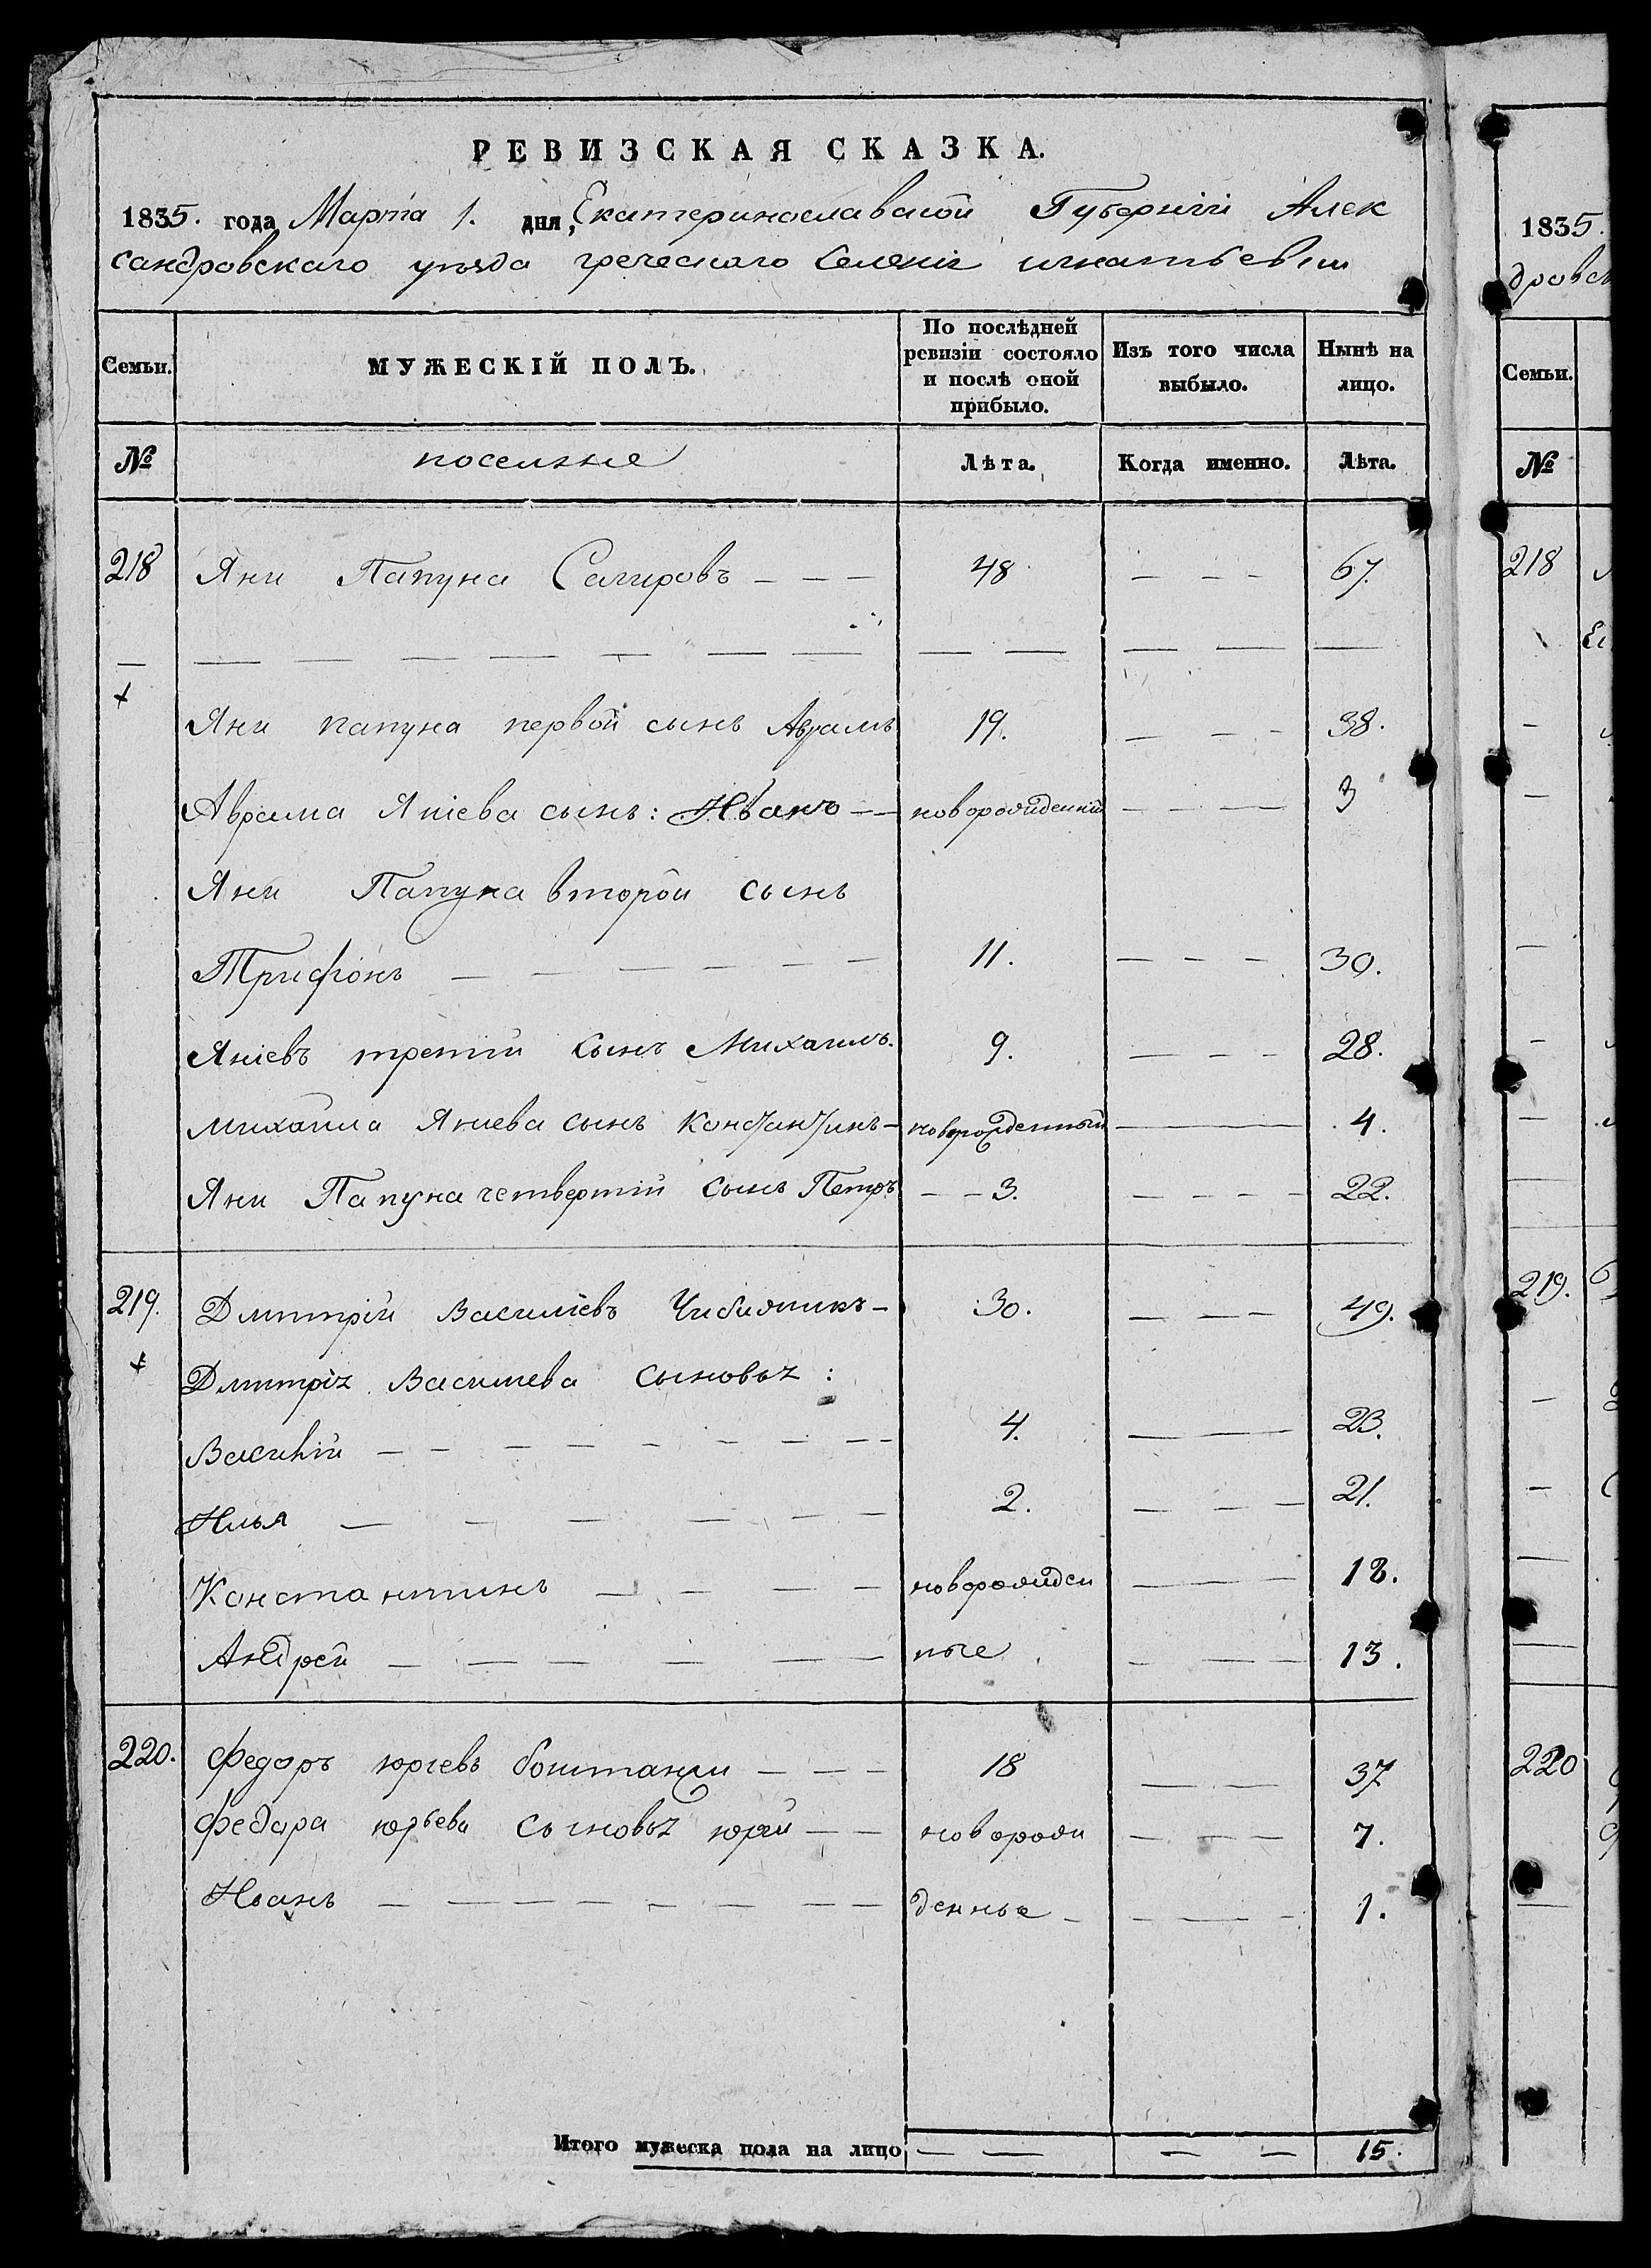 РЕВИЗСКАЯ СКАЗКА.
1835. года Марта 1. дня, Екатеринославской Губернiи Алек
сандровскаго уѣзда греческаго Селенiя игнатьевки
Семьи. МУЖЕСКІЙ ПОЛЪ. По послѣдней ревизіи состояло и послѣ оной прибыло. Изъ того числа выбыло. Нынѣ на лицо.
№ поселяне Лѣта. Когда именно. Лѣта.
218 Яни Папуна Сагировъ — — — 48 — — — 67.
Яни папуна первой сынъ Аврамъ 19. — — — 38.
Аврама Янiева сынъ: Иванъ — — новорожденный — — — 3
Яни Папуна второй сынъ
Трифонъ — — — — — — 11. — — — 30.
Янiевъ третiй сынъ Михаилъ. 9. — — — 28.
михаила Янiева сынъ Константинъ — новорожденный — — 4.
Яни Папуна четвертiй сынъ Петръ — — 3. — — — — 22.
219. Дмитрiй Василiевъ — 30. — — — 49.
Дмитрiя Василiева сыновья:
Василiй — — — — — — — — 4. — — — 23.
Илья — — — — — — 2. — — — 21.
Константинъ — — — — новорожден — — — 18.
Андрей — — — — — — ные — — — 13.
220. Федоръ юрьевъ — — — 18 — — — 37
Федора юрьева сыновья юрiй — — новорож — — — 7.
Иванъ — — — — — — — — денные — — — — 1.
Итого мужеска пола на лицо — — — — 15.
1835.
дровск
Семьи.
№
218
219.
220